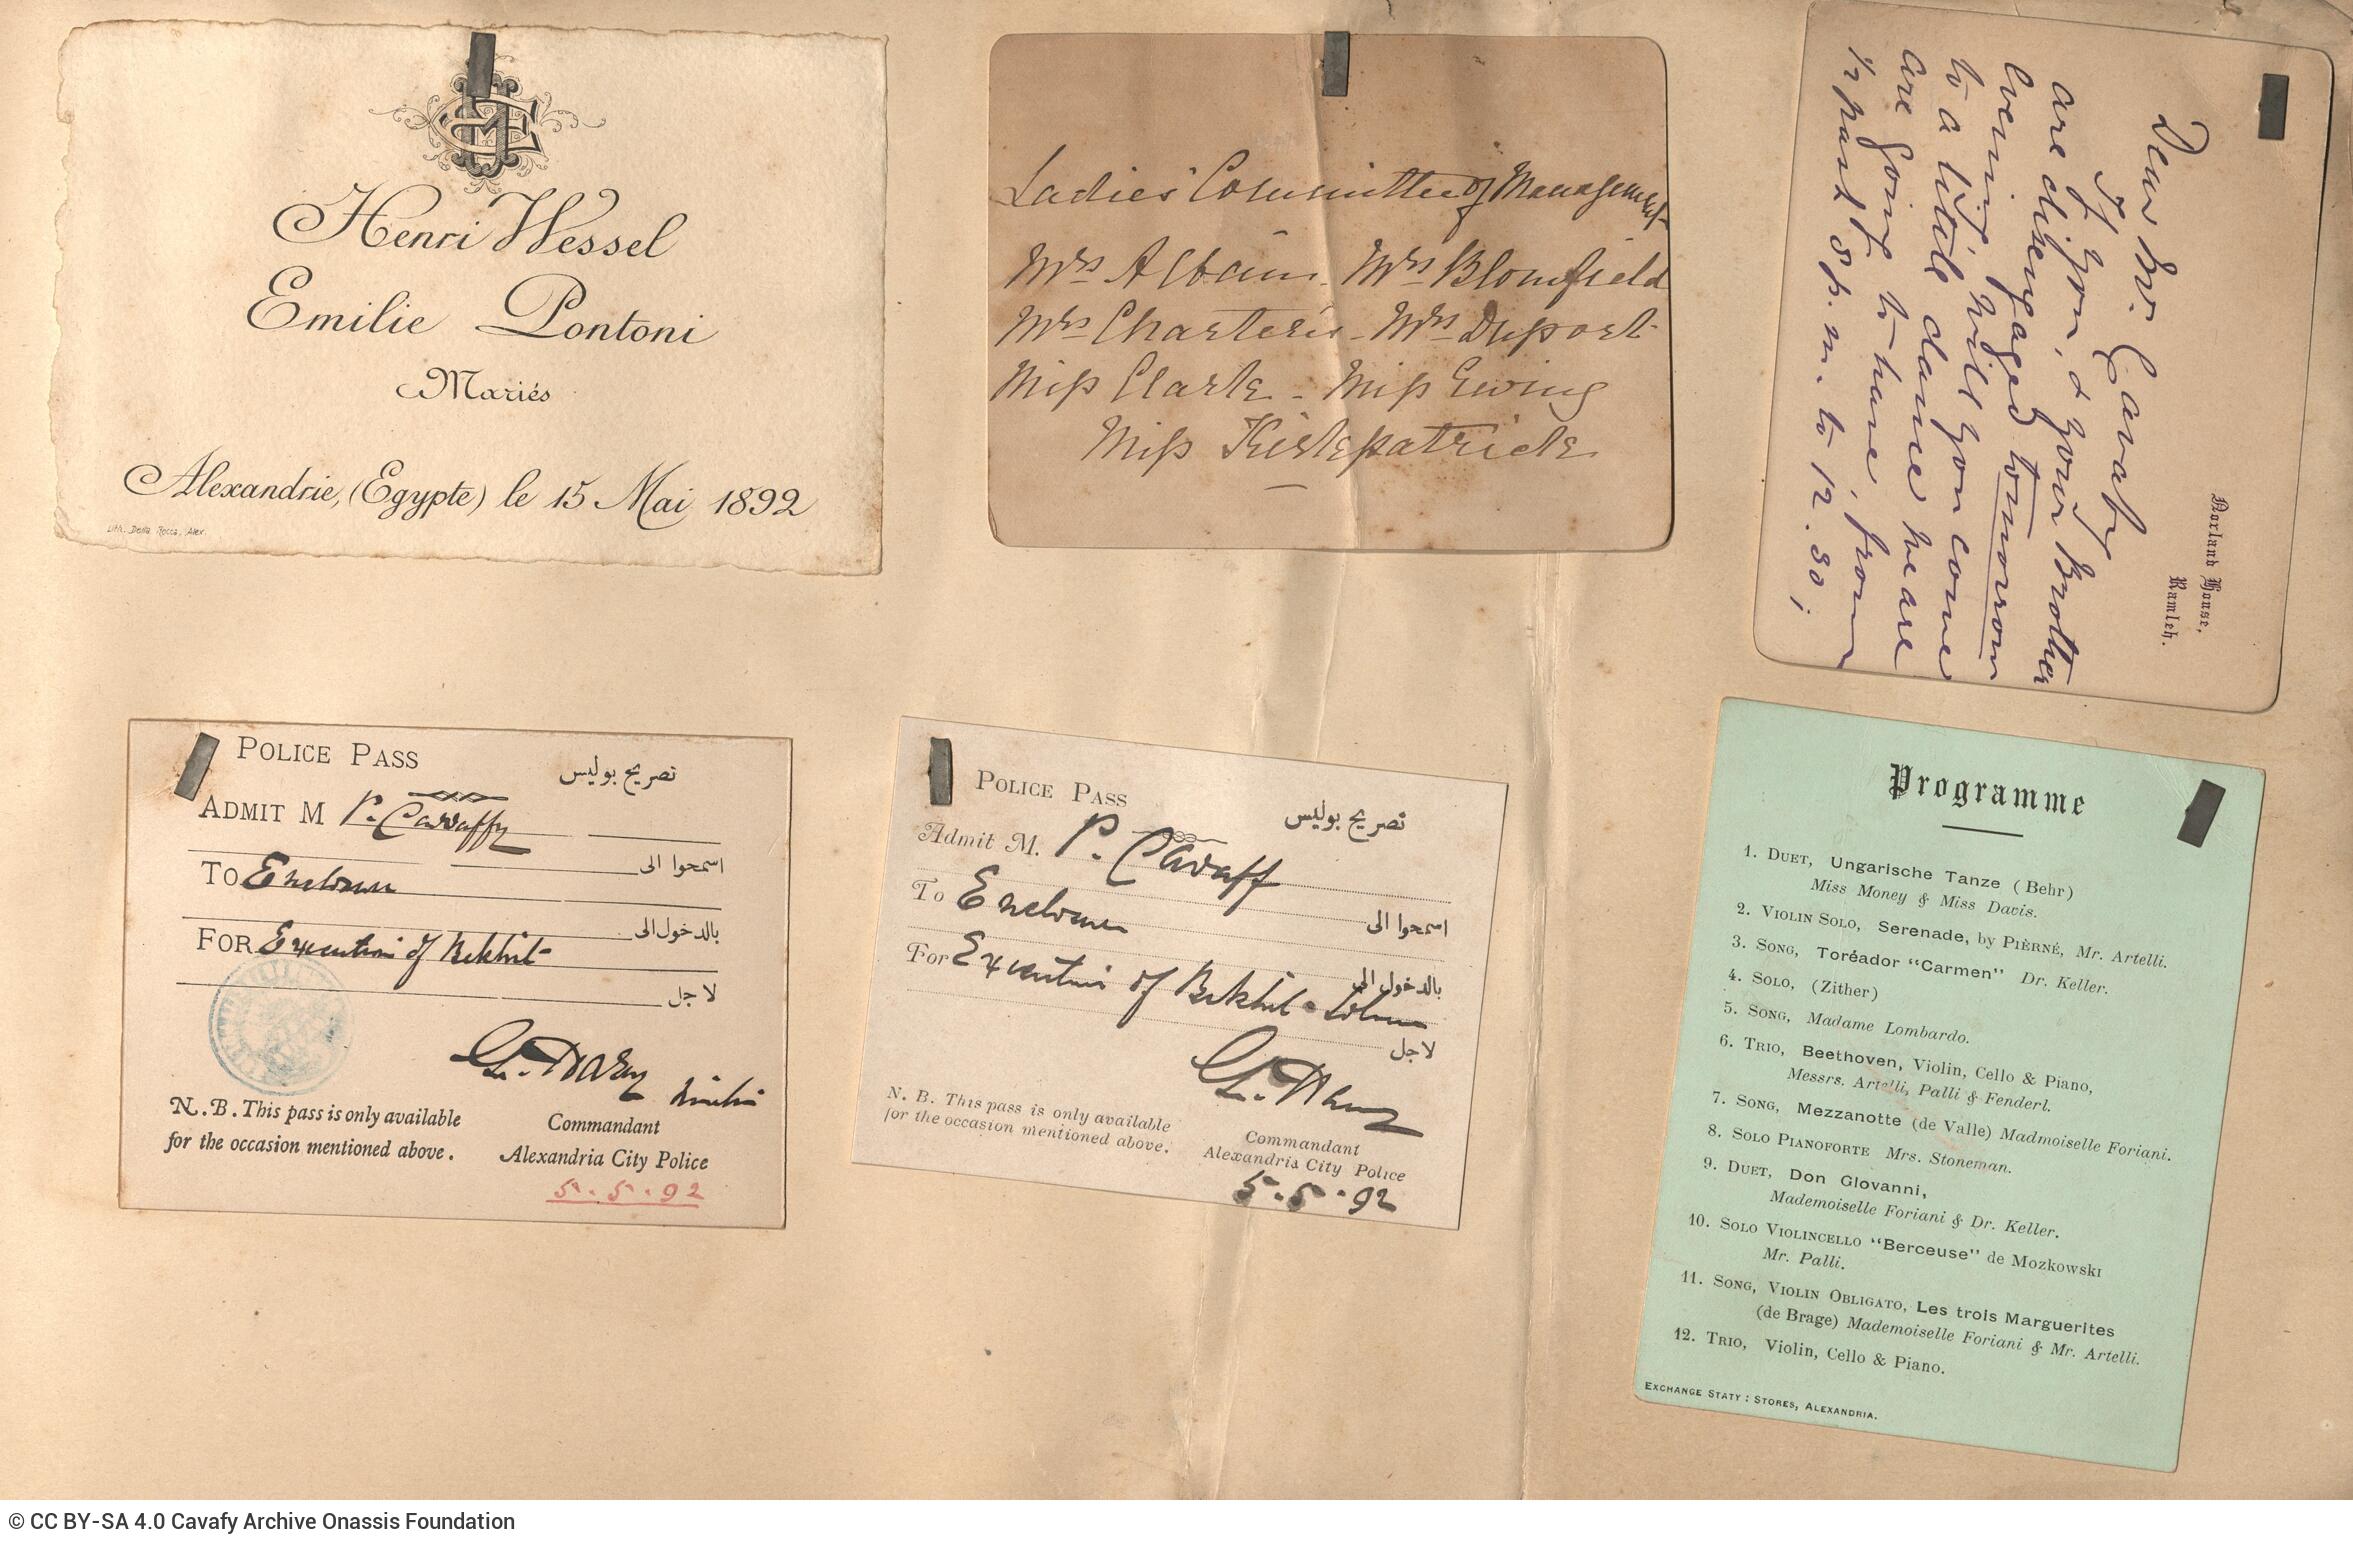 Henri Wessel
Emilie Pontoni
Mariés
Alexandrie, (Egypte) le 15 Mai 1892
Lith. Della Rocca, Alex.
Ladies' Committee of Management
Mrs Alban - Mrs Blomfield
Mrs Charteris - Mrs Duport
Miss Clarke - Miss Ewing
Miss Kirkpatrick
Dorland House,
Ramleh.
Dear Mr. Cavafy
If you, & your Brother
are disengaged tomorrow
evening, will you come
to a little dance we are
are going to have, from
½ past 8 p.m. to 12.30;
POLICE PASS
تصريح بوليس
ADMIT M P. Cavaffy
اسمحوا الى
TO Enclosure
بالدخول الى
FOR Execution of Bekhit
لاجل
N.B. This pass is only available
for the occasion mentioned above.
Commandant
Alexandria City Police
5.5.92
POLICE PASS
تصريح بوليس
Admit M. P. Cavaff
اسمحوا الى
To Enclosure
بالدخول الى
For Execution of Bekhit
لاجل
N. B. This pass is only available
for the occasion mentioned above.
Commandant
Alexandria City Police
5.5.92
Programme
1. DUET, Ungarische Tanze (Behr)
Miss Money & Miss Davis.
2. VIOLIN SOLO, Serenade, by PIÈRNÉ, Mr. Artelli.
3. SONG, Toréador "Carmen" Dr. Keller.
4. SOLO, (Zither)
5. SONG, Madame Lombardo.
6. TRIO, Beethoven, Violin, Cello & Piano,
Messrs. Artelli, Palli & Fenderl.
7. SONG, Mezzanotte (de Valle) Madmoiselle Foriani.
8. SOLO PIANOFORTE Mrs. Stoneman.
9. DUET, Don Giovanni,
Mademoiselle Foriani & Dr. Keller.
10. SOLO VIOLINCELLO "Berceuse" de MOZKOWSKI
Mr. Palli.
11. SONG, VIOLIN OBLIGATO, Les trois Marguerites
(de Brage) Mademoiselle Foriani & Mr. Artelli.
12. TRIO, Violin, Cello & Piano.
EXCHANGE STATY: STORES, ALEXANDRIA.
© CC BY-SA 4.0 Cavafy Archive Onassis Foundation